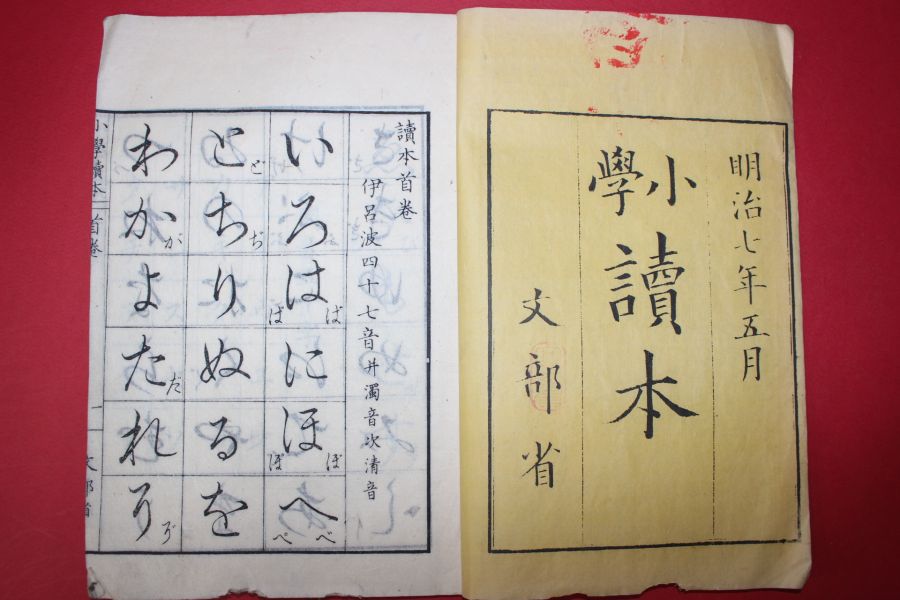 明治七年五月
小學
讀本
文部省
讀本首卷
伊呂波四十七音并濁音次清音
いろはばぱにほぼぽへべぺ
とどちぢりぬるを
わかがよただれそぞ
小學讀本 首卷 一 文部省